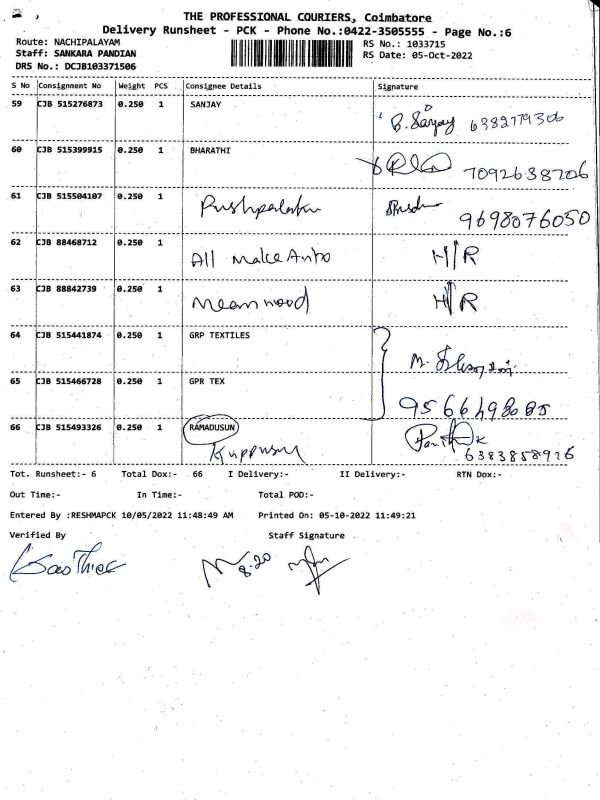 THE PROFESSIONAL COURIERS, Coimbatore
Delivery Runsheet - PCK - Phone No.:0422-3505555 - Page No.:6
Route: NACHIPALAYAM
Staff: SANKARA PANDIAN
DRS No.: DCJB103371506
RS No.: 1033715
RS Date: 05-Oct-2022
S No Consignment No Weight PCS Consignee Details Signature
59 CJB 515276873 0.250 1 SANJAY B. Sanjay 6382179306
60 CJB 515399915 0.250 1 BHARATHI 7092638706
61 CJB 515504107 0.250 1 9698076050
62 CJB 88468712 0.250 1 All Make H/R
63 CJB 88842739 0.250 1 H/R
64 CJB 515441874 0.250 1 GRP TEXTILES
65 CJB 515466728 0.250 1 GPR TEX
66 CJB 515493326 0.250 1 RAMADUSUN 6383858926
Tot. Runsheet:- 6 Total Dox:- 66 I Delivery:- II Delivery:- RTN Dox:-
Out Time:- In Time:- Total POD:-
Entered By :RESHMAPCK 10/05/2022 11:48:49 AM Printed On: 05-10-2022 11:49:21
Verified By Staff Signature
8.20